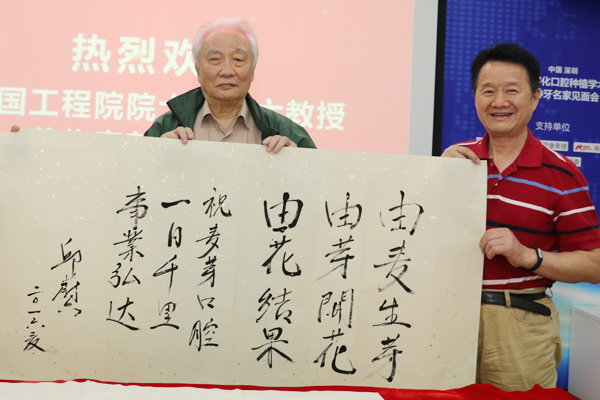 热烈欢
国工程院院
教授
中国 深圳
化口腔种植学
牙名家见面会
支持单位
由麦生芽
由芽開花
由花结果
祝麦芽口腔
一日千里
事業弘达
邱蔚六
二〇一六夏